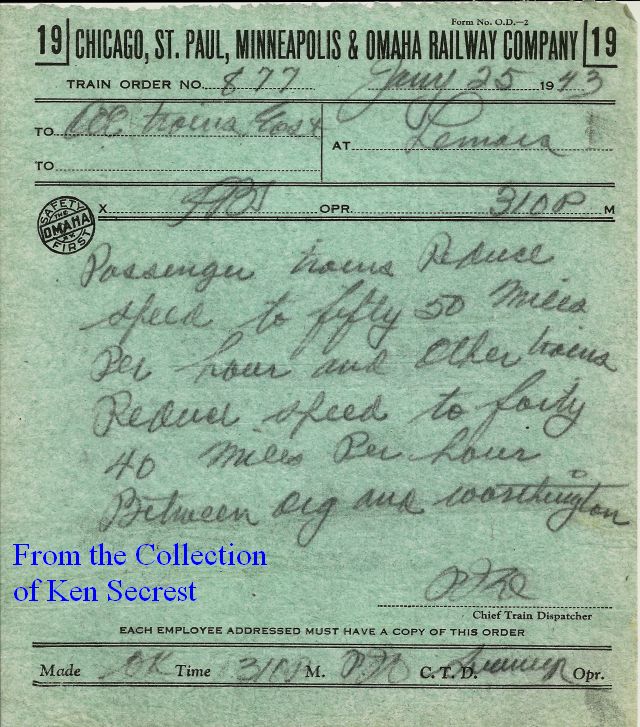 Form No. O.D.—2
19 CHICAGO, ST. PAUL, MINNEAPOLIS & OMAHA RAILWAY COMPANY 19
TRAIN ORDER NO. 877 Jany 25 1943
TO All trains East AT Lemars
TO
SAFETY FIRST THE OMAHA RY
X OPR. 310P M
Passenger trains Reduce
speed to fifty 50 Miles
Per hour and Other trains
Reduce speed to forty
40 Miles Per hour
Between Org and Worthington
From the Collection
of Ken Secrest
Chief Train Dispatcher
EACH EMPLOYEE ADDRESSED MUST HAVE A COPY OF THIS ORDER
Made OK Time 310P M. C. T. D. Opr.